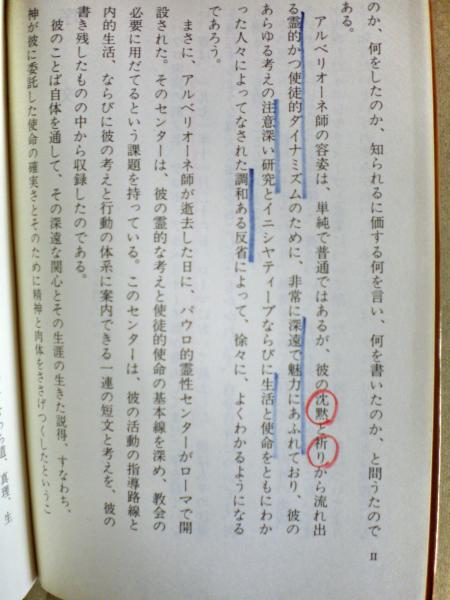 のか、何をしたのか、知られるに価する何を言い、何を書いたのか、と問うたので
ある。
アルベリオーネ師の容姿は、単純で普通ではあるが、彼の沈黙と祈りから流れ出
る霊的かつ使徒的ダイナミズムのために、非常に深遠で魅力にあふれており、彼の
あらゆる考えの注意深い研究とイニシャティーブならびに生活と使命をともにわか
った人々によってなされた調和ある反省によって、徐々に、よくわかるようになる
であろう。
まさに、アルベリオーネ師が逝去した日に、パウロ的霊性センターがローマで開
設された。そのセンターは、彼の霊的な考えと使徒的使命の基本線を深め、教会の
必要に用だてるという課題を持っている。このセンターは、彼の活動の指導路線と
内的生活、ならびに彼の考えと行動の体系に案内できる一連の短文と考えを、彼の
書き残したものの中から収録したのである。
彼のことば自体を通して、その深遠な関心とその生涯の生きた説得、すなわち、
神が彼に委託した使命の確実さとそのために精神と肉体をささげつくしたというこ
道、真理、生
II